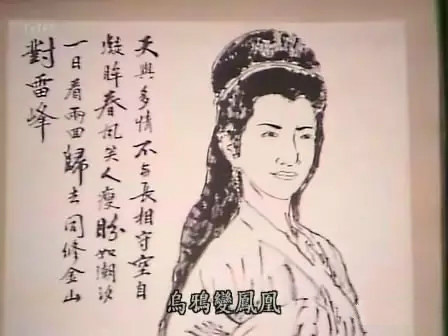 天與多情不与長相守空自
凝眸春風笑人瘦盼如潮汐
一日看兩回歸去同修金山
對雷峰
烏鴉變鳳凰